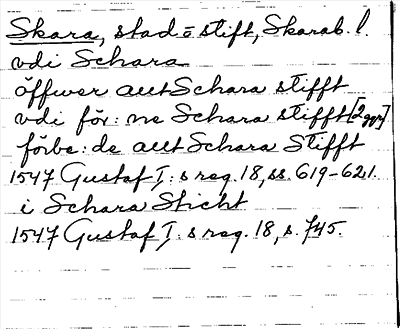 Skara, stad o stift, Skarab. l.
vdi Schara
öffwer alt Schara stifft
vdi för: ne Schara stifft [2 ggr]
förbe: de alt Schara Stifft
1547 Gustaf I: s reg. 18, ss. 619-621.
i Schara Sticht
1547 Gustaf I: s reg. 18, s. 745.